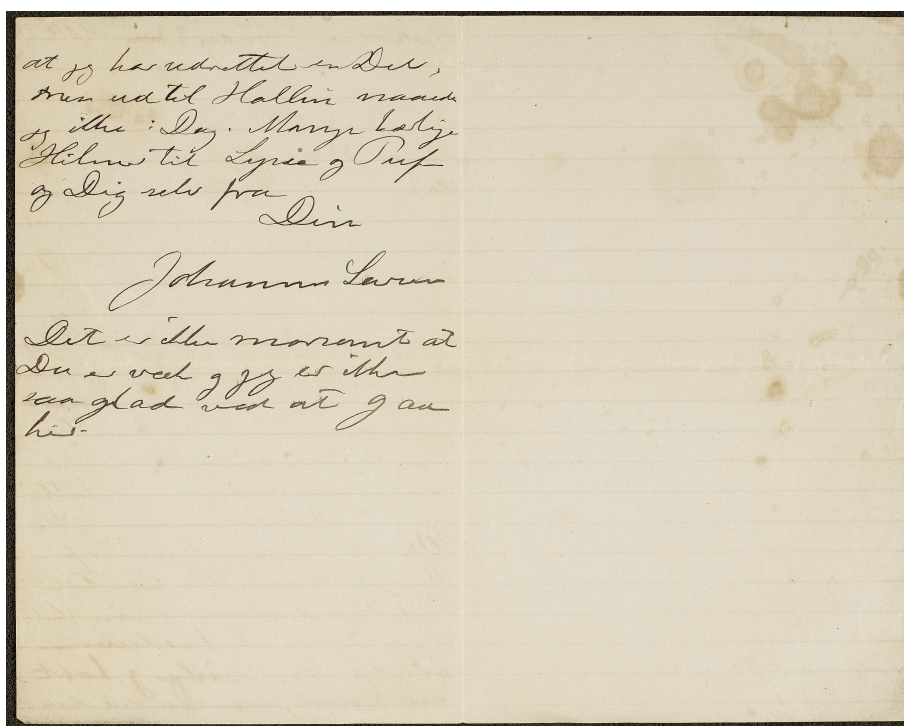 at jeg har udrettet en Del,
men ud til Hallin naaede
jeg ikke i Dag. Mange kærlige
Hilsner til Lysse og Puf
og Dig selv fra
Din
Johannes Larsen
Det er ikke morsomt at
Du er væk og jeg er ikke
saa glad ved at gaa
her.